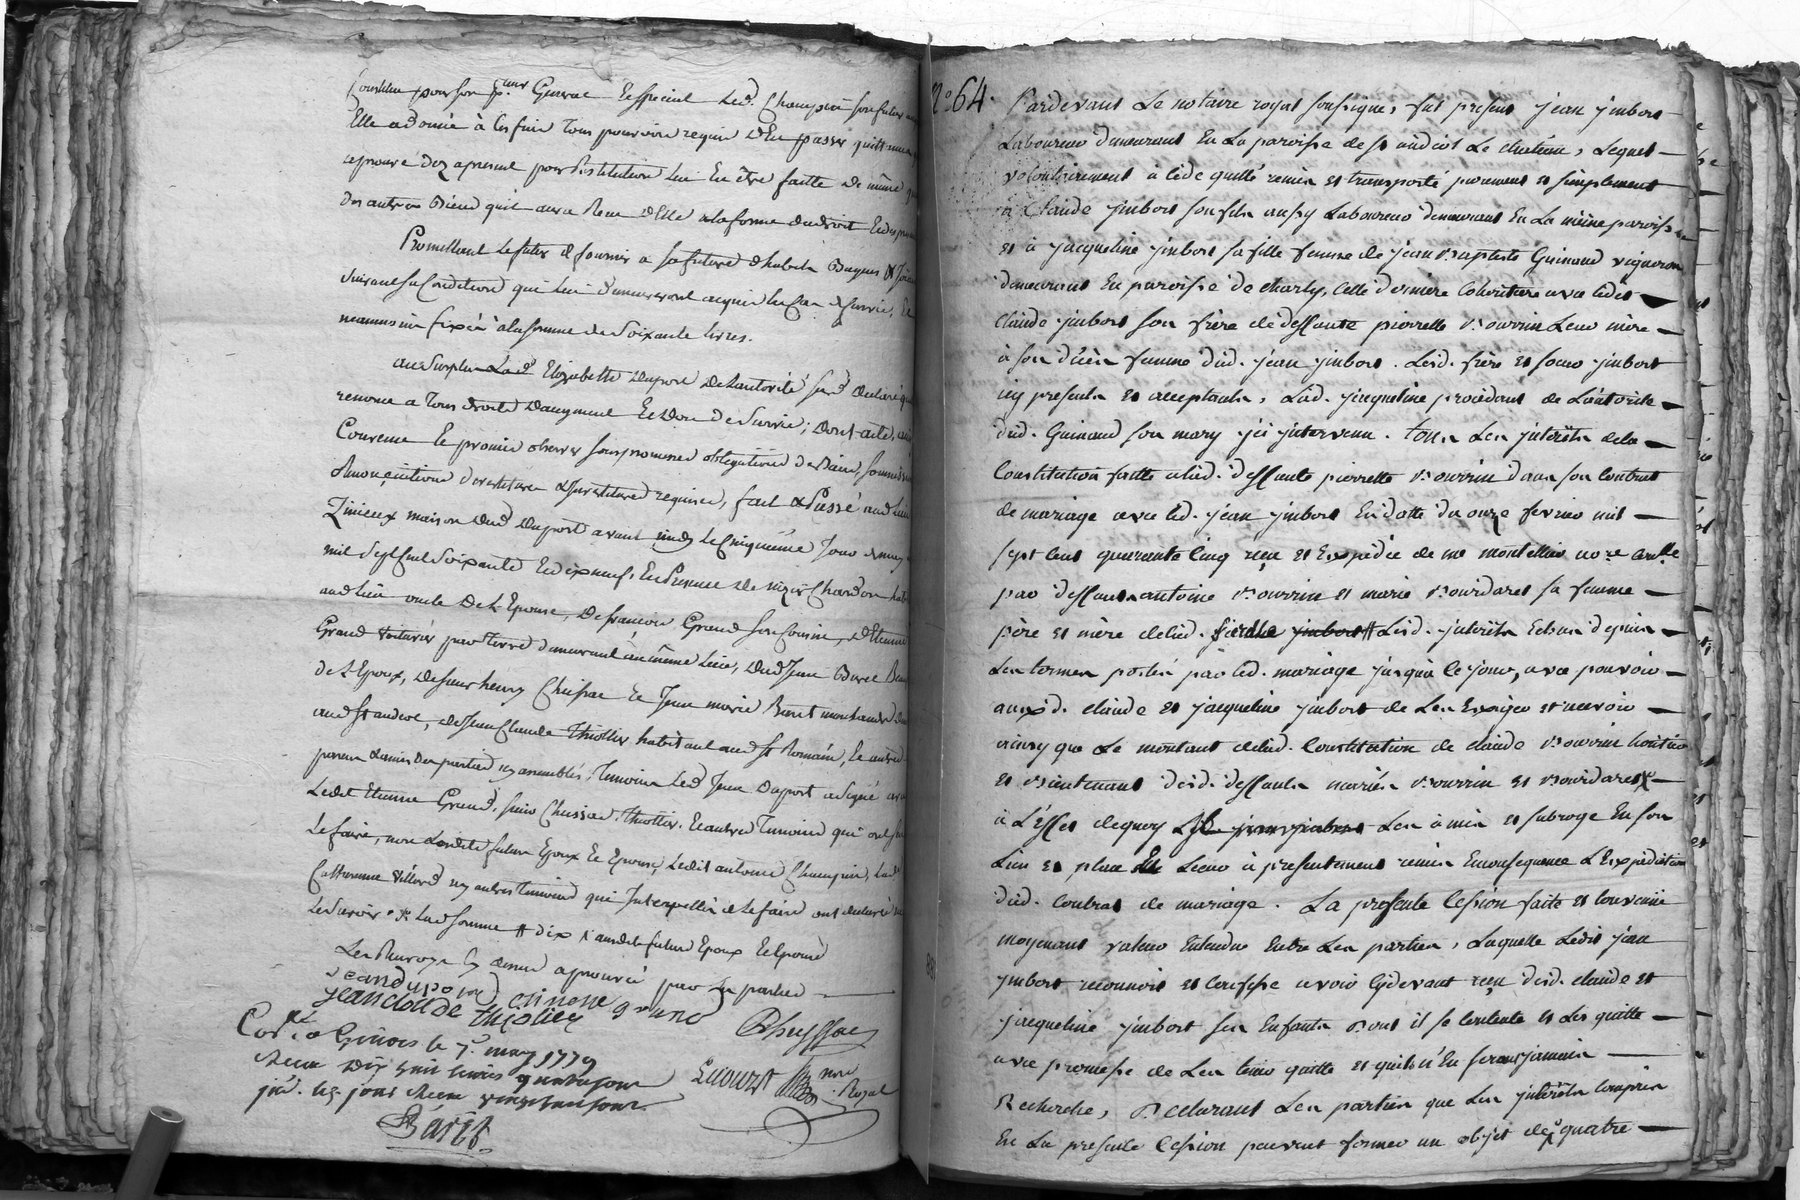 Constitue pour son p.eur General Et special Led. Champin son futur
Elle a donné à Ces fins Tous pouvoirs requis D'En passer quittance
a promis dez apresent pour Restitution lui En être faitte De même
Des autres Biens qu'il aura Reçu d'Elle a la forme du droit
Promettant le futur de fournir a sa future d'habits Bagues & Joiaux
suivant sa Condition qui lui demeureront acquis En Cas de survie,
neanmoins fixés à la somme de Soixante livres.
au Surplus Lad. Elizabette Duport De l'autorité susd. declare
renonce a Tous droits D'augment Et Don de Survie; Dont acte,
Convenu Et promis observer sous promesses obligations de Biens, soumissions
Renonçiations devestiture & Investitures requises, fait & Passé aud. lieu
Zinieux maison dud. Duport avant midy Le Cinquième Jour de may
mil Sept Cent Soixante Et dix neuf, En Presence de nizier Chardon
aud. lieu oncle De L'Epouse, De francois Grand son Cousin, d'Etienne
Grand voiturier par terre demeurant au même lieu, Dud. Jean
de L'Epoux, De sieur henry Chuissac Et Jean marie Buret
aud. St andeol, de Jean Claude Thiollier habitant aud. St Romain, Et autres
parens & amis Des parties icy assemblés, Temoins Led. Jean Duport a signé
Ledit Etienne Grand, sieur Chuissac, Thiollier, Et autres Temoins qui ont sçu
Le faire, non Lesdits futurs Epoux Et Epouse, Ledit antoine Champin,
Catherine Villard ny autres Temoins qui Interpellés de Le faire ont declaré ne
Le sçavoir. Lad. somme dix auxdits futurs Epoux Et Epouse
Les Renvoys Cy dessus aprouvés par les parties
jean duport etienne grand
jean cloude thiolier Chuyssac
Con.lé a Givors le 7. may 1779
Reçu Dix huit livres
Nre Royal
Barit
N° 64.
Pardevant Le notaire royal soussigné, fut present jean jmbert
Laboureur demeurant En La paroisse de St andeol Le chateau, Lequel
volontairement à cédé quitté remis et transporté purement et simplement
à Claude jmbert son fils aussy Laboureur demeurant En La même paroisse
et à jacqueline jmbert sa fille femme de jean Baptiste Guinand vigneron
demeurant En paroisse de charly, Cette derniere Coheritiere avec ledit
Claude jmbert son frère de deffunte pierrette Bourrin Leur mère
à son décès femme dud. jean jmbert. Lesd. frère et soeur jmbert
icy presents et acceptants, Lad. jacqueline procédant de L'autorité
dud. Guinand son mary ici intervenu. tous Les jnterêts de la
Constitution faitte alad. deffunte pierrette Bourrin dans son Contrat
de mariage avec led. jean jmbert En datte du onze fevrier mil
sept cent quarante Cinq reçu et Expédié de me montellier no.re
par deffunts antoine Bourrin et marie Bourdaret sa femme
père et mère delad. Lesd. jnterêts Echus depuis
Les termes portés par led. mariage jusqu'à ce jour, avec pouvoir
auxd. claude et jacqueline jmbert de Les Exiger et recevoir
ainsy que Le montant delad. Constitution de claude Bourrin heritier
et Bientenant desd. deffunts mariés Bourrin et Bourdaret
à L'Effet dequoy Les à mis et subrogé En son
Lieu et place Leur à presentement remis Enconsequence L'Expédition
dud. Contrat de mariage. La presente Cession faite et Convenüe
moyenant valeur Entendüe Entre Les parties, Laquelle Ledit jean
jmbert reconnoit et Confesse avoir Cydevant reçu desd. claude et
jacqueline jmbert ses Enfants Dont il se Contente et Les quitte
avec promesse de Les tenir quitte et qu'ils n'En seront jamais
Recherchés, Declarant Les parties que Les jnterêts Compris
En La presente Cession peuvent former un objet de quatre